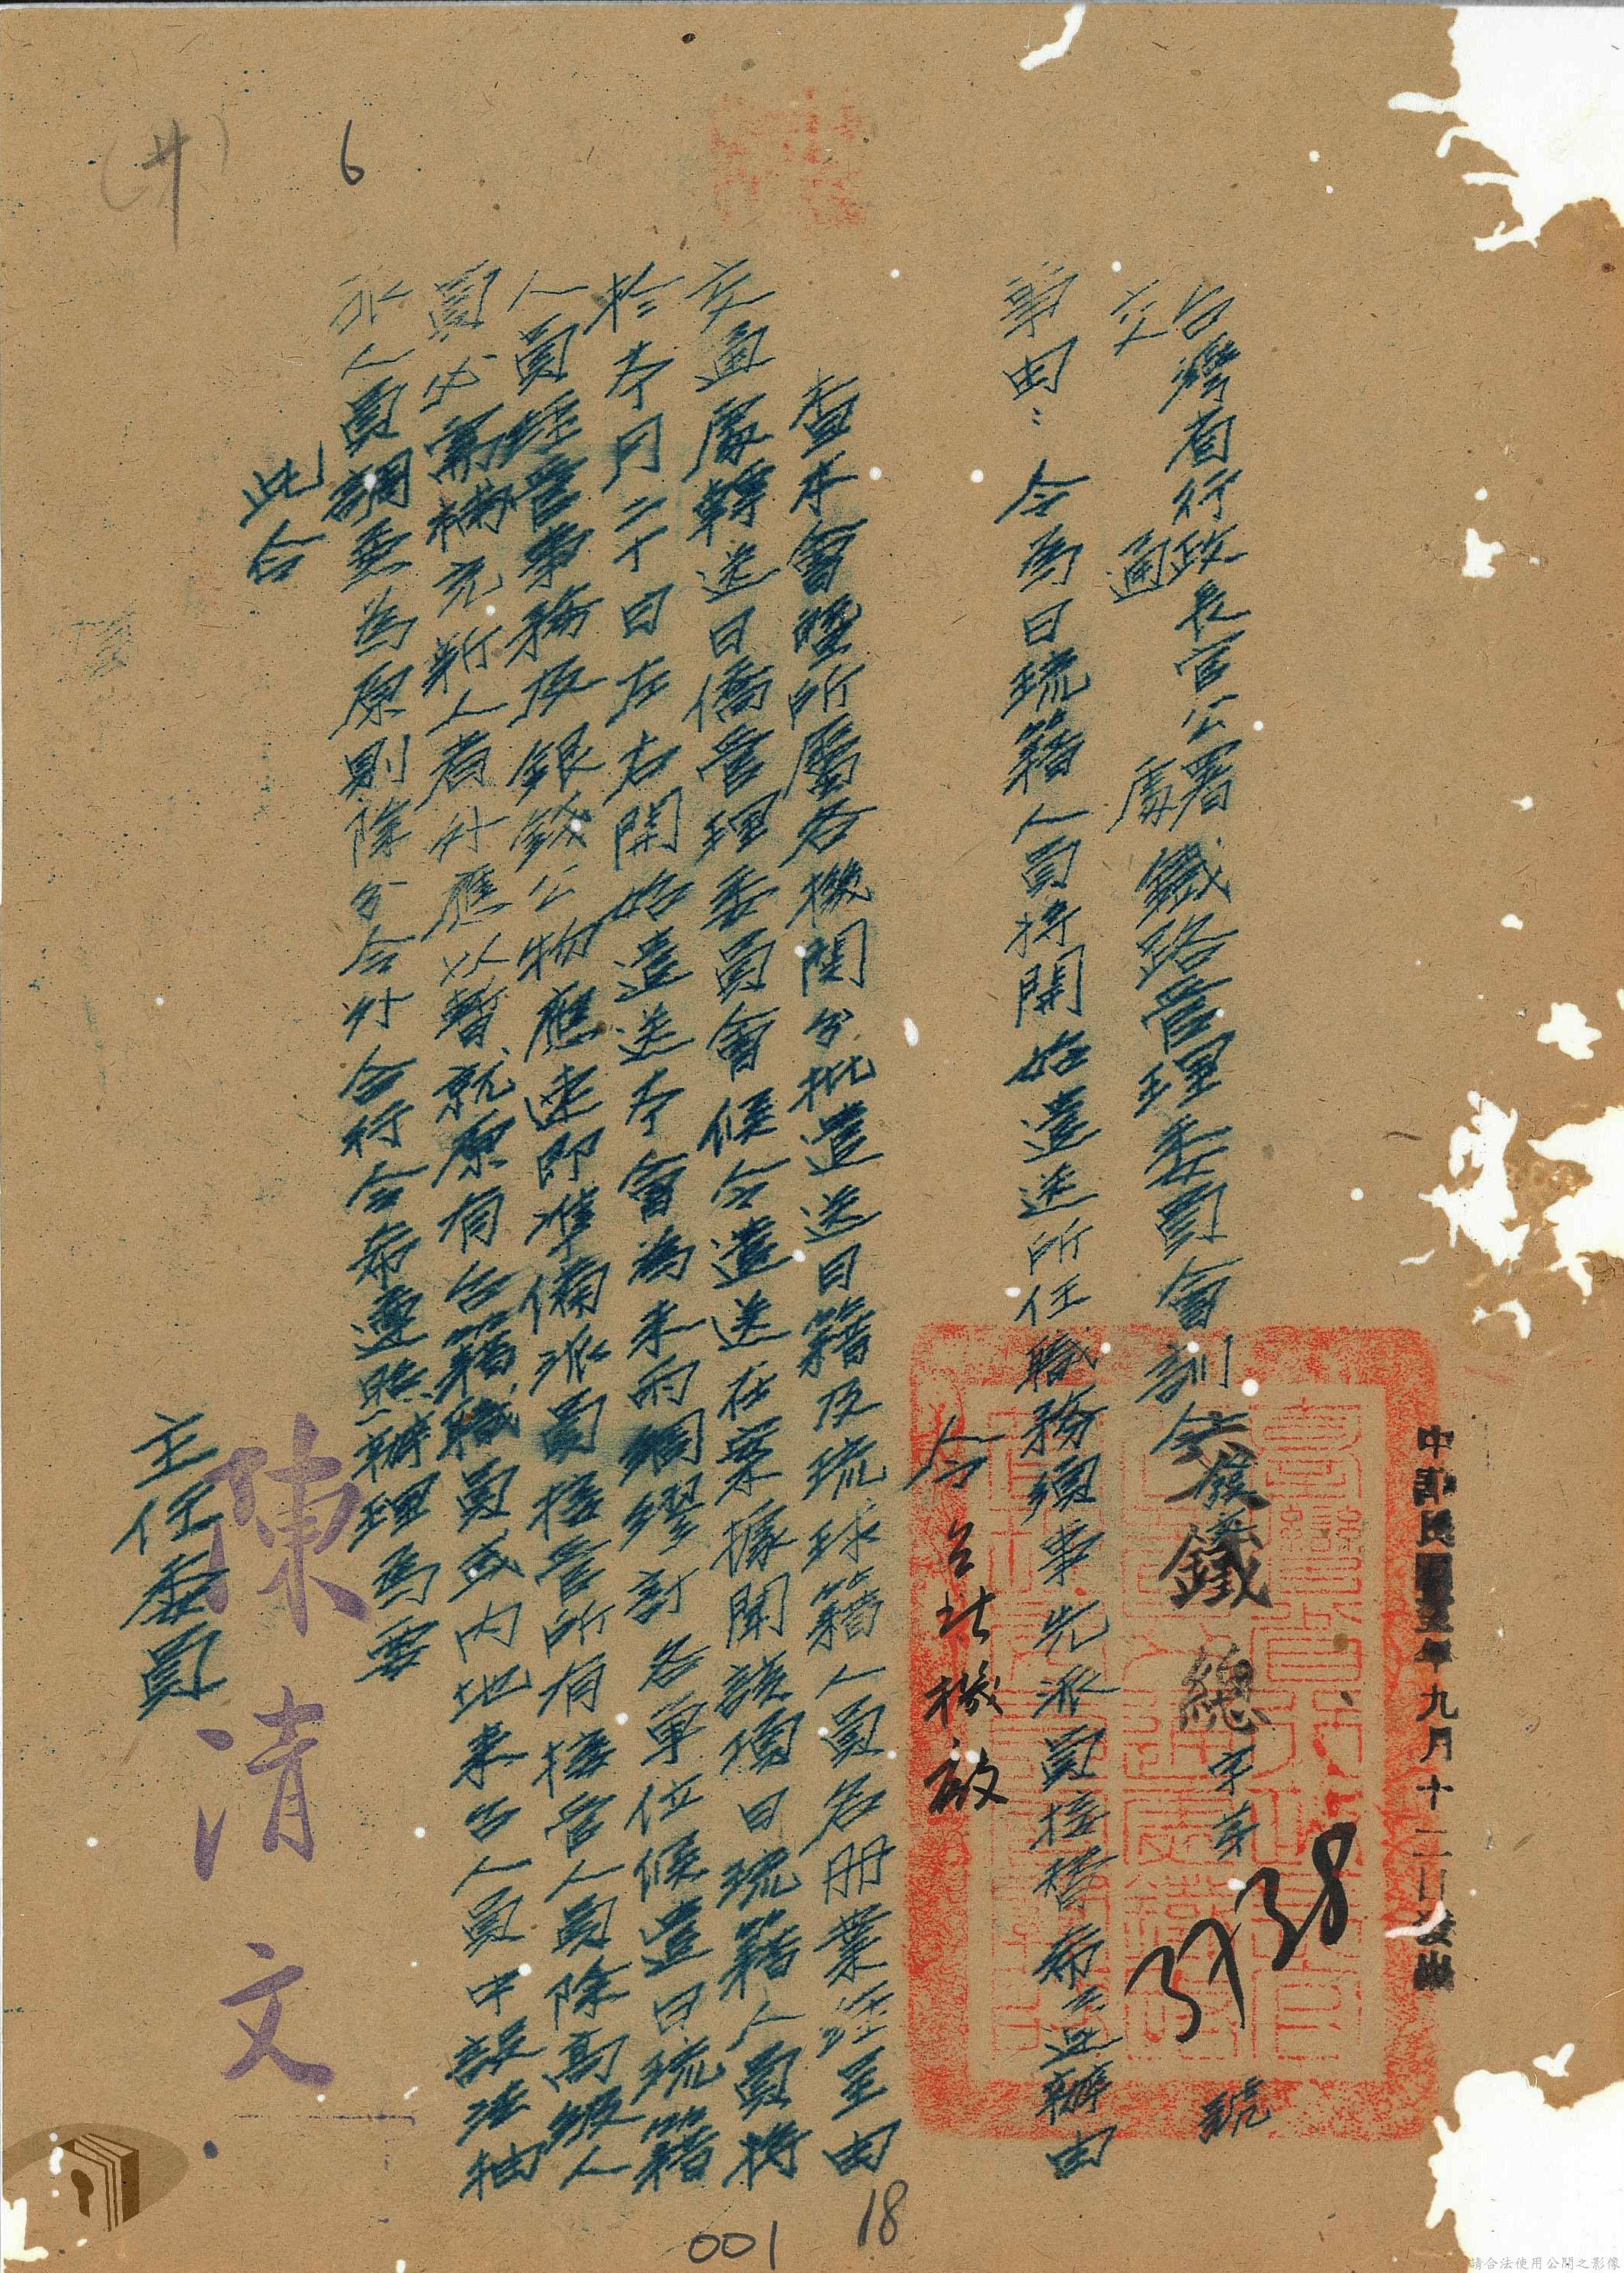 中華民國三十五年九月十二日發出
台灣省行政長官公署
交通處鐵路管理委員會訓令
鐵總字第 號
3738
事由：令為日琉籍人員將開始遣送所任職務須事先派員接替希遵辦由
令台北機廠
查本會暨所屬各機關分批遣送日籍及琉球籍人員名冊業經呈由
交通處轉送日僑管理委員會候令遣送在案據聞該項日琉籍人員將
於本月二十日左右開始遣送本會為未雨綢繆計各單位候遣日琉籍
人員經管事務及銀錢公物應速即準備派員接管所有接管人員除高級人
員必需補充新人者外應以暫就原有台籍職員或內地來台人員中設法抽
派人員調委為原則除分令外合行令希遵照辦理為要
此令
主任委員
陳清文
6
(廿)
18
001
請合法使用公開之影像